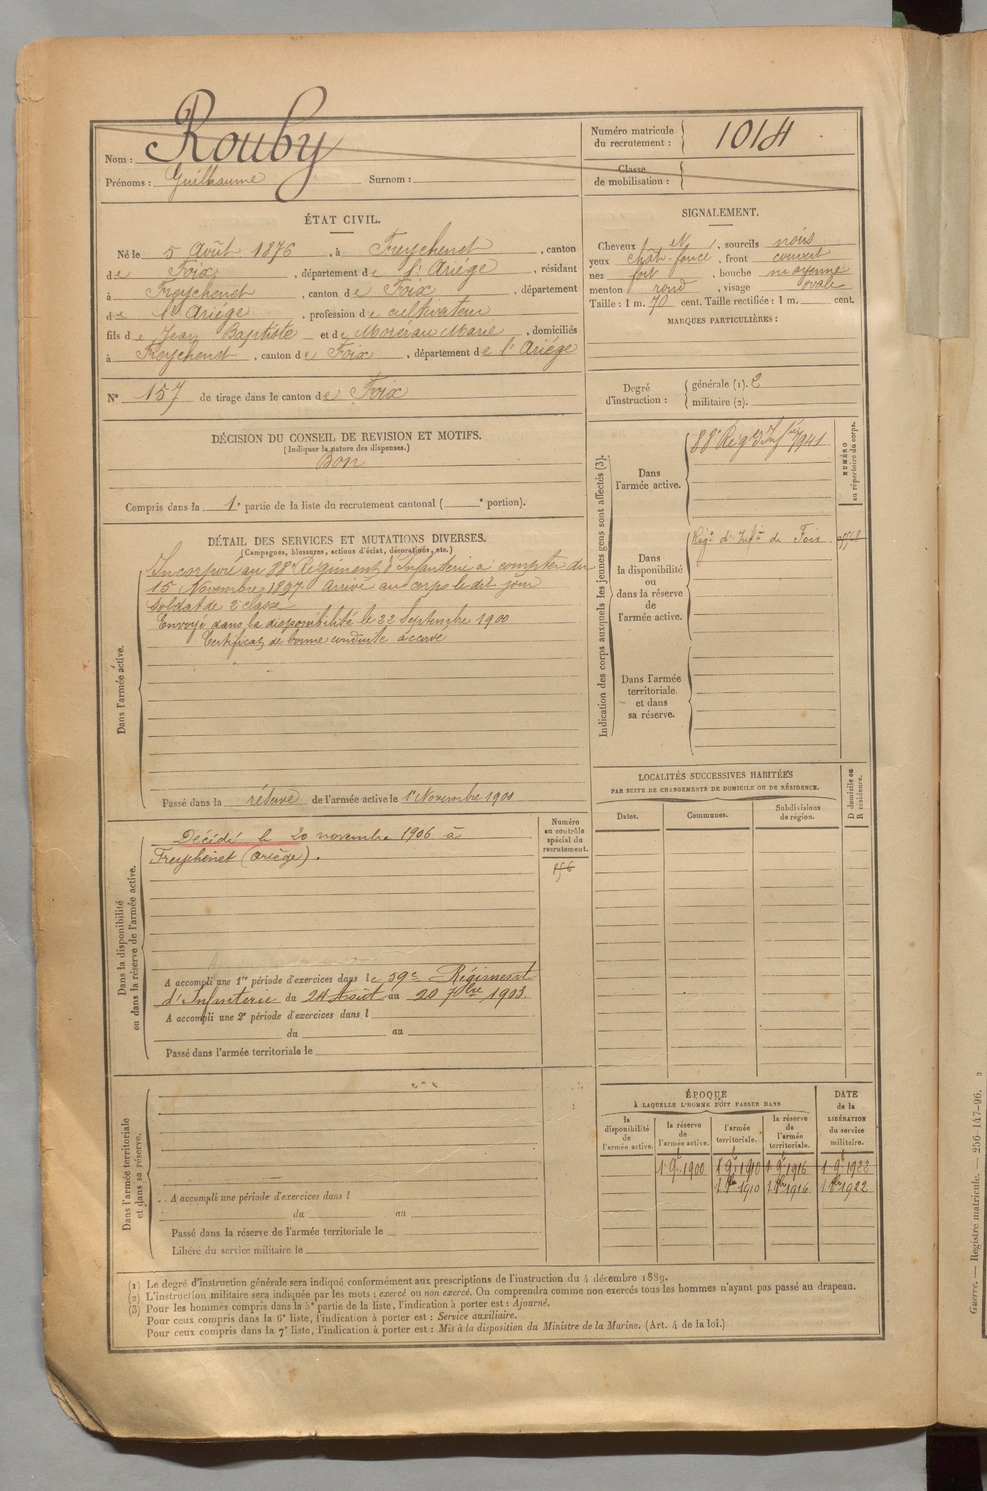 Nom : Rouby
Prénoms : Guilhaume Surnom :
Numéro matricule du recrutement : 1014
Classe de mobilisation :
ÉTAT CIVIL.
Né le 5 Août 1876, à Freychenet, canton
de Foix, département de l'Ariège, résidant
à Freychenet, canton de Foix, département
de l'Ariège, profession de cultivateur
fils de Jean Baptiste et de Morerau Marie, domiciliés
à Freychenet, canton de Foix, département de l'Ariège
N° 157 de tirage dans le canton de Foix
SIGNALEMENT.
Cheveux N, sourcils noirs
yeux chat. foncé, front couvert
nez fort, bouche moyenne
menton rond, visage ovale
Taille : 1 m. 70 cent. Taille rectifiée : 1 m. cent.
MARQUES PARTICULIÈRES :
Degré d'instruction : générale (1). 2
militaire (2).
DÉCISION DU CONSEIL DE REVISION ET MOTIFS.
(Indiquer la nature des dispenses.)
Bon
Compris dans la 1e partie de la liste du recrutement cantonal ( e portion).
DÉTAIL DES SERVICES ET MUTATIONS DIVERSES.
(Campagnes, blessures, actions d'éclat, décorations, etc.)
Dans l'armée active.
Incorporé au 88e Régiment d'Infanterie à compter du
15 Novembre 1897. Arrivé au corps le dit jour
soldat de 2e classe
Envoyé dans la disponibilité le 22 Septembre 1900
Certificat de bonne conduite accordé
Passé dans la réserve de l'armée active le 1er Novembre 1900
Indication des corps auxquels les jeunes gens sont affectés (3).
NUMÉRO au répertoire du corps.
Dans l'armée active.
88e Rég. d'Infrie 7941
Dans la disponibilité ou dans la réserve de l'armée active.
Régt d'Infie de Foix
Dans l'armée territoriale et dans sa réserve.
LOCALITÉS SUCCESSIVES HABITÉES
PAR SUITE DE CHANGEMENTS DE DOMICILE OU DE RÉSIDENCE.
Dates. Communes. Subdivisions de région. D domicile ou R résidence.
Dans la disponibilité ou dans la réserve de l'armée active.
Numéro au contrôle spécial du recrutement.
Décédé le 20 novembre 1906 à
Freychenet (Ariège).
A accompli une 1re période d'exercices dans le 59e Régiment
d'Infanterie du 24 Août au 20 7bre 1903.
A accompli une 2e période d'exercices dans l
du au
Passé dans l'armée territoriale le
Dans l'armée territoriale et dans sa réserve.
A accompli une période d'exercices dans l
du au
Passé dans la réserve de l'armée territoriale le
Libéré du service militaire le
ÉPOQUE
À LAQUELLE L'HOMME DOIT PASSER DANS
la disponibilité de l'armée active. la réserve de l'armée active. l'armée territoriale. la réserve de l'armée territoriale.
DATE de la LIBÉRATION du service militaire.
1 9e 1900 1 9e 1910 1 9e 1916 1 9e 1922
1 8bre 1910 1 8bre 1916 1 8bre 1922
(1) Le degré d'instruction générale sera indiqué conformément aux prescriptions de l'instruction du 4 décembre 1889.
(2) L'instruction militaire sera indiquée par les mots : exercé ou non exercé. On comprendra comme non exercés tous les hommes n'ayant pas passé au drapeau.
(3) Pour les hommes compris dans la 5e partie de la liste, l'indication à porter est : Ajourné.
Pour ceux compris dans la 6e liste, l'indication à porter est : Service auxiliaire.
Pour ceux compris dans la 7e liste, l'indication à porter est : Mis à la disposition du Ministre de la Marine. (Art. 4 de la loi.)
Guerre. — Registre matricule. — 256-147-96. 2